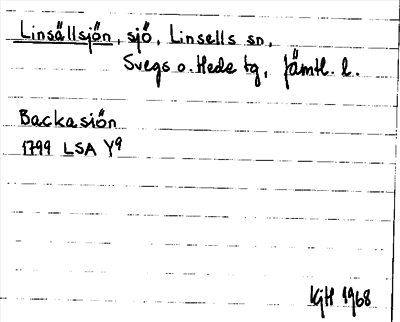 Linsällsjön, sjö, Linsells sn,
Svegs o. Hede tg, Jämtl. l.
Backasiön
1799 LSA Y9
KjH 1968